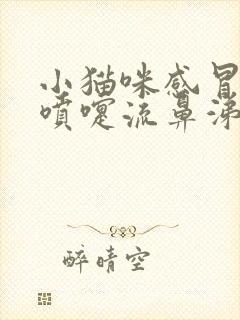 小猫咪感冒
喷嚏流鼻涕
醉晴空